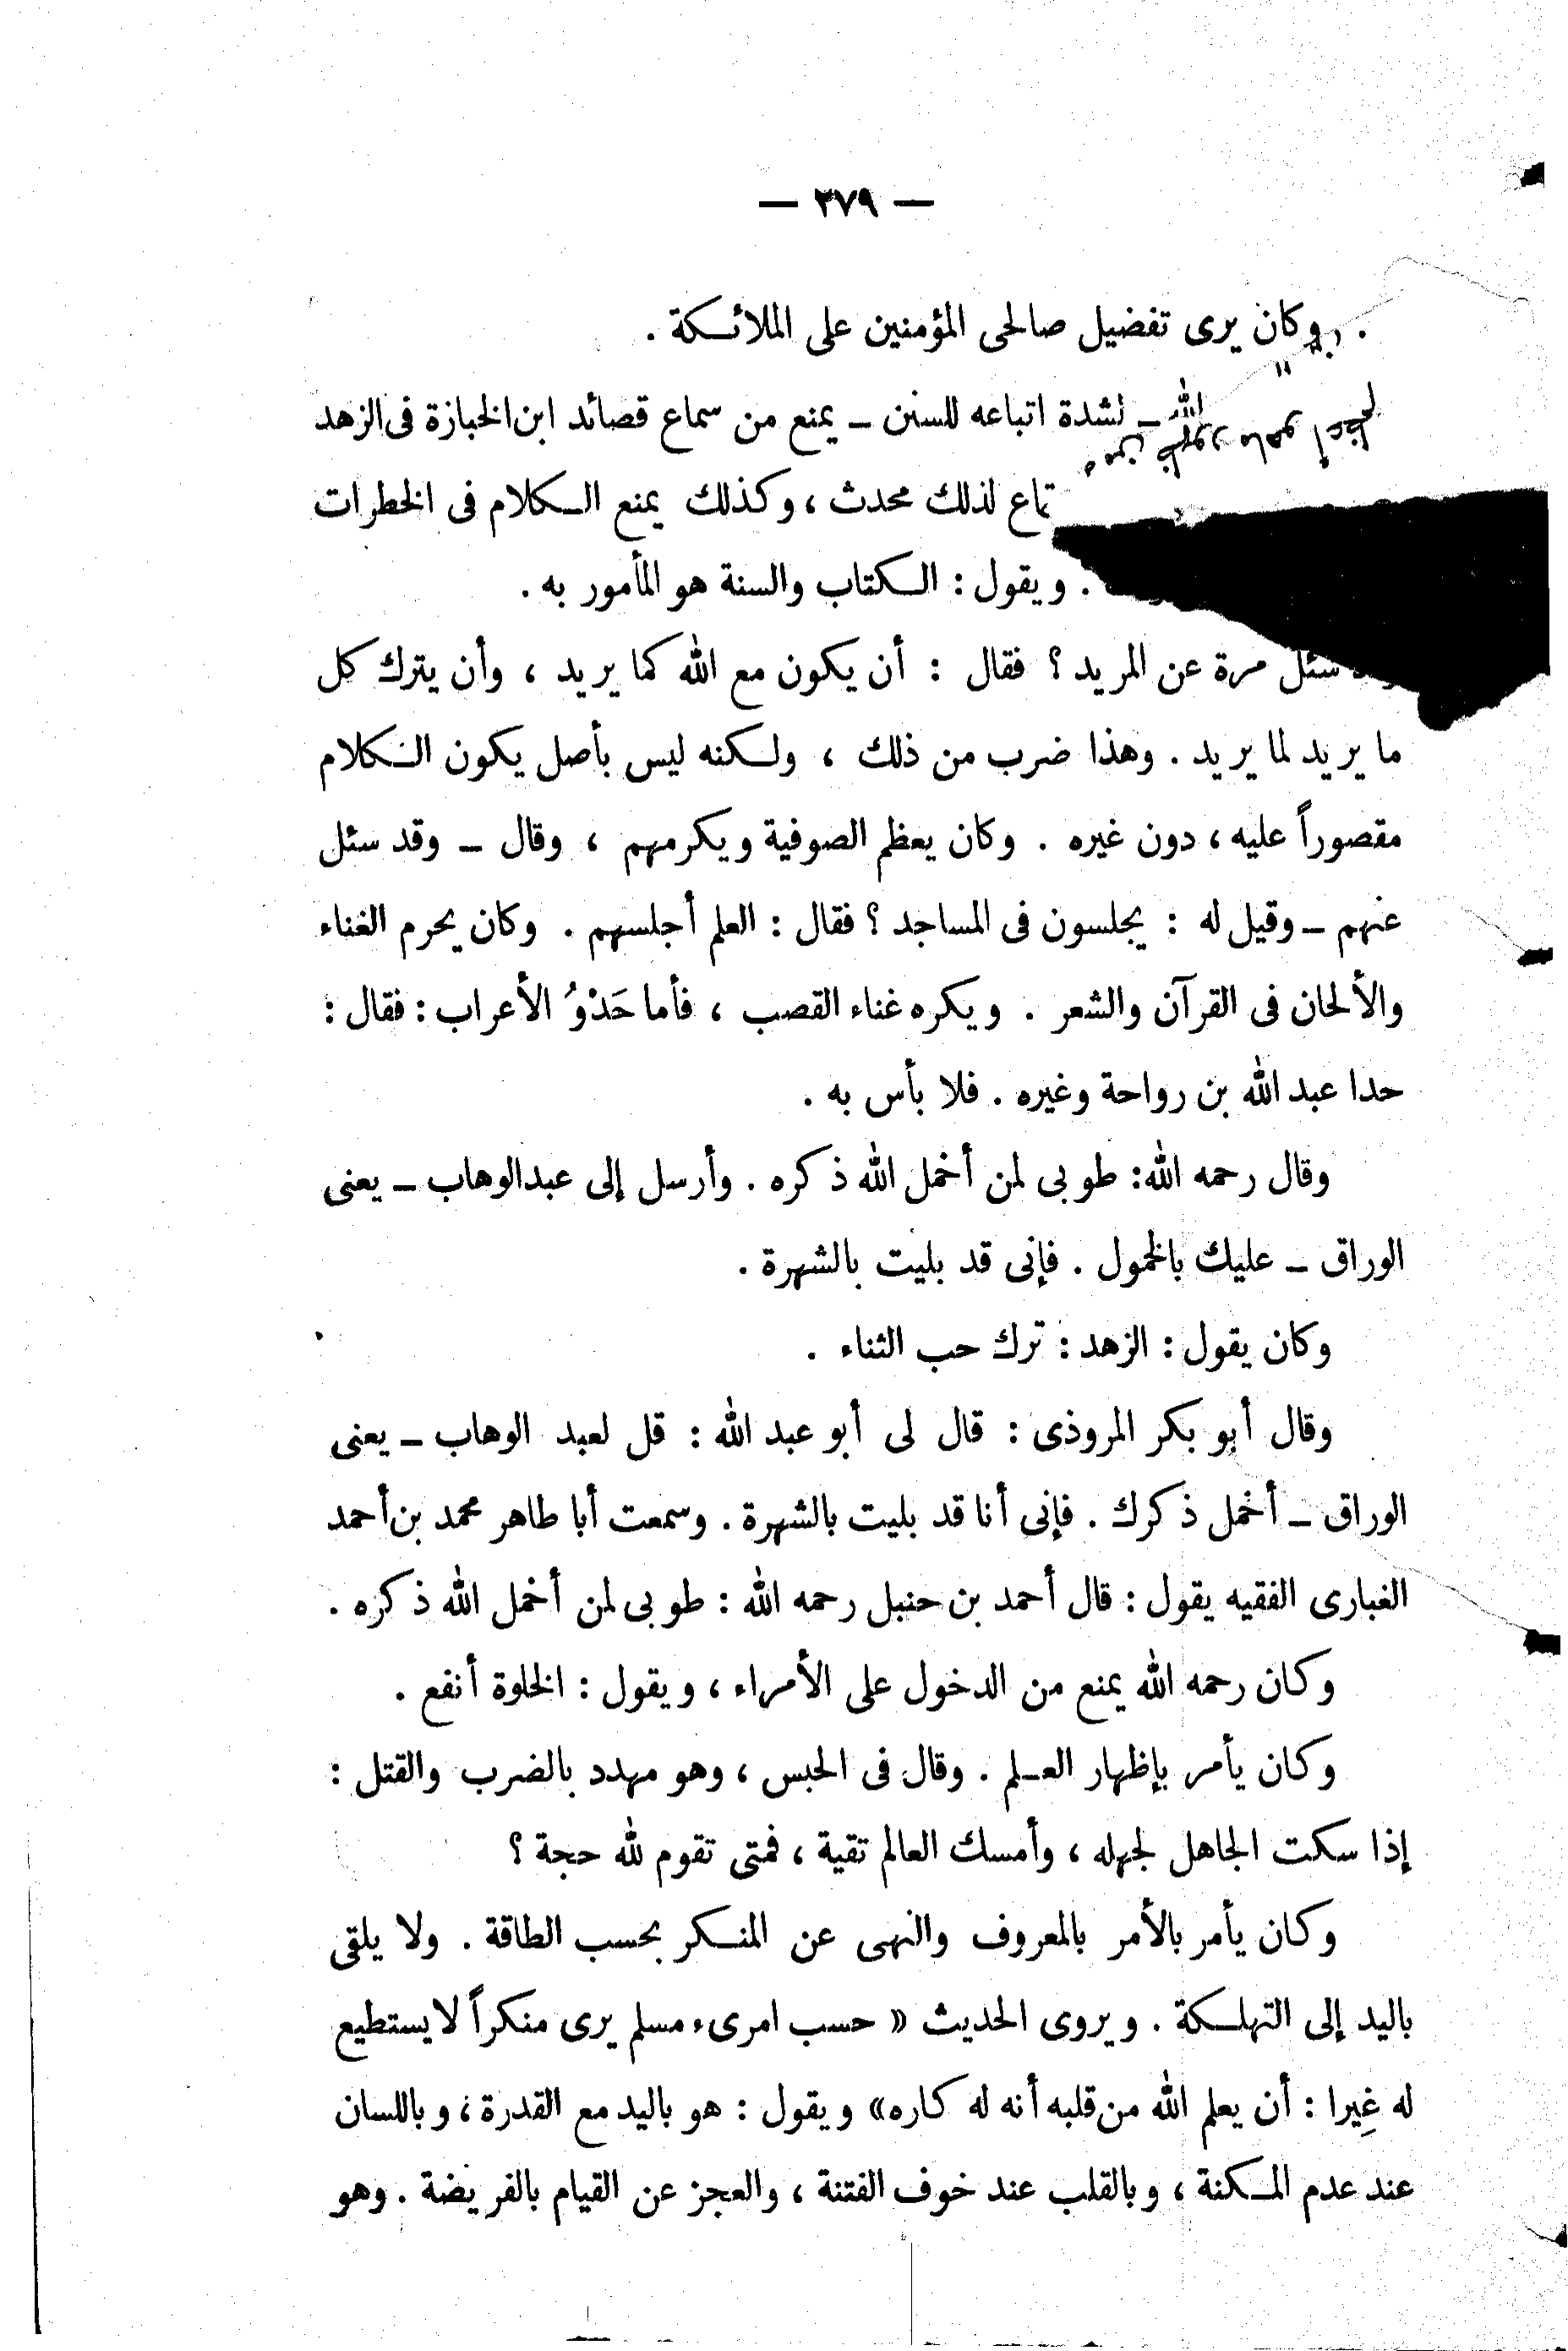 — ٢٧٩ —
وكان يرى تفضيل صالحى المؤمنين على الملائكة .
الله ـ لشدة اتباعه للسنن ـ يمنع من سماع قصائد ابن الخبازة فى الزهد
لذلك محدث ، وكذلك يمنع الكلام فى الخطرات
. ويقول : الكتاب والسنة هو المأمور به .
سئل مرة عن المريد ؟ فقال : أن يكون مع الله كما يريد ، وأن يترك كل
ما يريد لما يريد . وهذا ضرب من ذلك ، ولكنه ليس بأصل يكون الكلام
مقصوراً عليه ، دون غيره . وكان يعظم الصوفية ويكرمهم ، وقال ـ وقد سئل
عنهم ـ وقيل له : يجلسون فى المساجد ؟ فقال : العلم أجلسهم . وكان يحرم الغناء
والألحان فى القرآن والشعر . ويكره غناء القصب ، فأما حَدْوُ الأعراب : فقال :
حدا عبد الله بن رواحة وغيره . فلا بأس به .
وقال رحمه الله : طوبى لمن أخمل الله ذكره . وأرسل إلى عبدالوهاب ـ يعنى
الوراق ـ عليك بالخمول . فإنى قد بليت بالشهرة .
وكان يقول : الزهد : ترك حب الثناء .
وقال أبو بكر المروذى : قال لى أبو عبد الله : قل لعبد الوهاب ـ يعنى
الوراق ـ أخمل ذكرك . فإنى أنا قد بليت بالشهرة . وسمعت أبا طاهر محمد بن أحمد
الغبارى الفقيه يقول : قال أحمد بن حنبل رحمه الله : طوبى لمن أخمل الله ذكره .
وكان رحمه الله يمنع من الدخول على الأمراء ، ويقول : الخلوة أنفع .
وكان يأمر بإظهار العلم . وقال فى الحبس ، وهو مهدد بالضرب والقتل :
إذا سكت الجاهل لجهله ، وأمسك العالم تقية ، فمتى تقوم لله حجة ؟
وكان يأمر بالأمر بالمعروف والنهى عن المنكر بحسب الطاقة . ولا يلقى
باليد إلى التهلكة . ويروى الحديث « حسب امرىء مسلم يرى منكراً لا يستطيع
له غِيرا : أن يعلم الله من قلبه أنه له كاره » ويقول : هو باليد مع القدرة ، وباللسان
عند عدم المكنة ، وبالقلب عند خوف الفتنة ، والعجز عن القيام بالفريضة . وهو